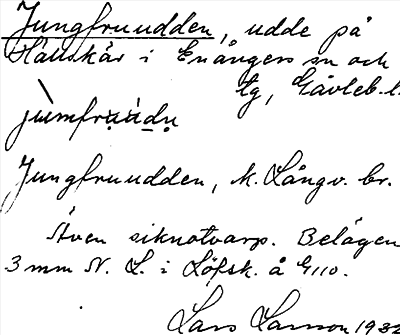 Jungfruudden, udde på
Hållskär i Enångers sn och
tg, Gävleb. l.
jùmfrụụ́dṇ
Jungfruudden, k. Långv. br.
Även siknotvarp. Belägen
3 mm N. L. i Löfsk. å G110.
Lars Larsson 1932